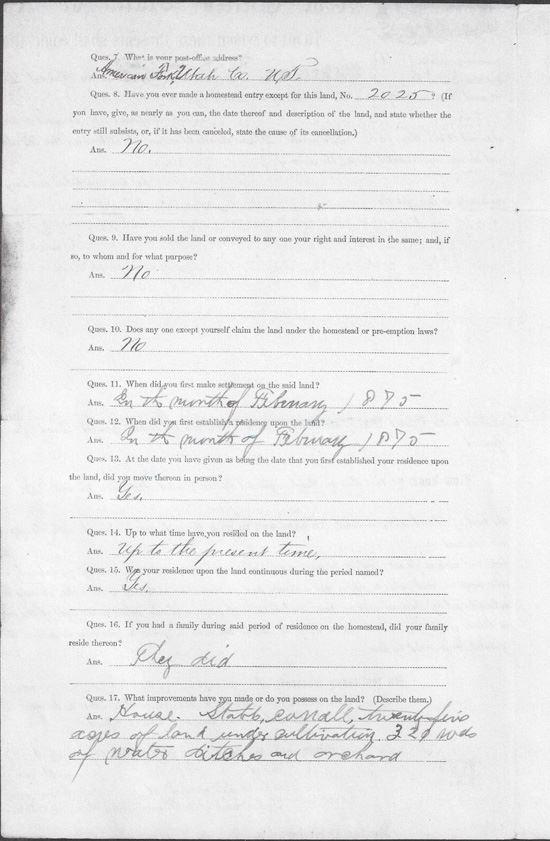 Ques. 7. What is your post-office address?
Ans. American Fork, Utah Co. U.T.
Ques. 8. Have you ever made a homestead entry except for this land, No. 2025? (If
you have, give, as nearly as you can, the date thereof and description of the land, and state whether the
entry still subsists, or, if it has been canceled, state the cause of its cancellation.)
Ans. No.
Ques. 9. Have you sold the land or conveyed to any one your right and interest in the same; and, if
so, to whom and for what purpose?
Ans. No
Ques. 10. Does any one except yourself claim the land under the homestead or pre-emption laws?
Ans. No
Ques. 11. When did you first make settlement on the said land?
Ans. In the month of February 1875
Ques. 12. When did you first establish a residence upon the land?
Ans. In the month of February 1875
Ques. 13. At the date you have given as being the date that you first established your residence upon
the land, did you move thereon in person?
Ans. Yes.
Ques. 14. Up to what time have you resided on the land?
Ans. Up to the present time,
Ques. 15. Was your residence upon the land continuous during the period named?
Ans. Yes.
Ques. 16. If you had a family during said period of residence on the homestead, did your family
reside thereon?
Ans. They did
Ques. 17. What improvements have you made or do you possess on the land? (Describe them.)
Ans. House. corrall, twenty five
acres of land under cultivation 320 rods
of water ditches and orchard